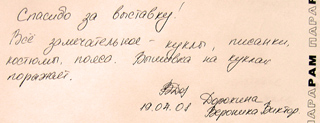 Спасибо за выставку!
Всё замечательное - куклы, писанки,
костюмы, пояса. Вышивка на куклах
поражает.
19.04.01 Дорохина
Вероника Виктор.
ПАРАРАМ ПАРА